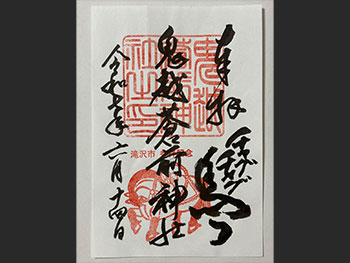 奉拝
チャグチャグ
馬コ
鬼越蒼前神社
令和七年六月十四日
滝沢市